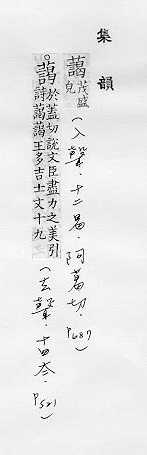 集韻
藹茂盛皃(入聲.十二曷.阿葛切.P687)
○藹於蓋切說文臣盡力之美引
詩藹藹王多吉士文十九(去聲.十四夳.P521)